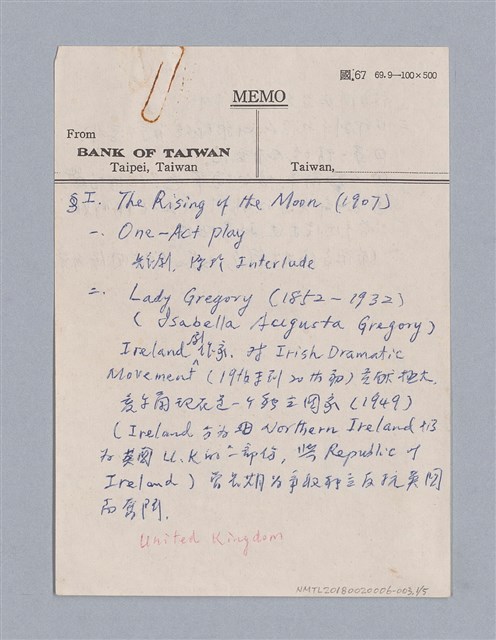 國.67 69.9—100×500
MEMO
From
BANK OF TAIWAN
Taipei, Taiwan
Taiwan,
§I. The Rising of the Moon (1907)
一. One-Act play
短劇, Interlude
二. Lady Gregory (1852-1932)
(Isabella Augusta Gregory)
Ireland 劇作家. 對 Irish Dramatic
Movement (19th 末到 20th 初) 貢献極大.
愛尔蘭現在是一个獨立國家 (1949)
(Ireland 分为 Northern Ireland
为英國 U.K 的一部份, 與 Republic of
Ireland) 曾長期为爭取獨立反抗英國
而奮鬥.
United Kingdom
NMTL20180020006-003.1/5